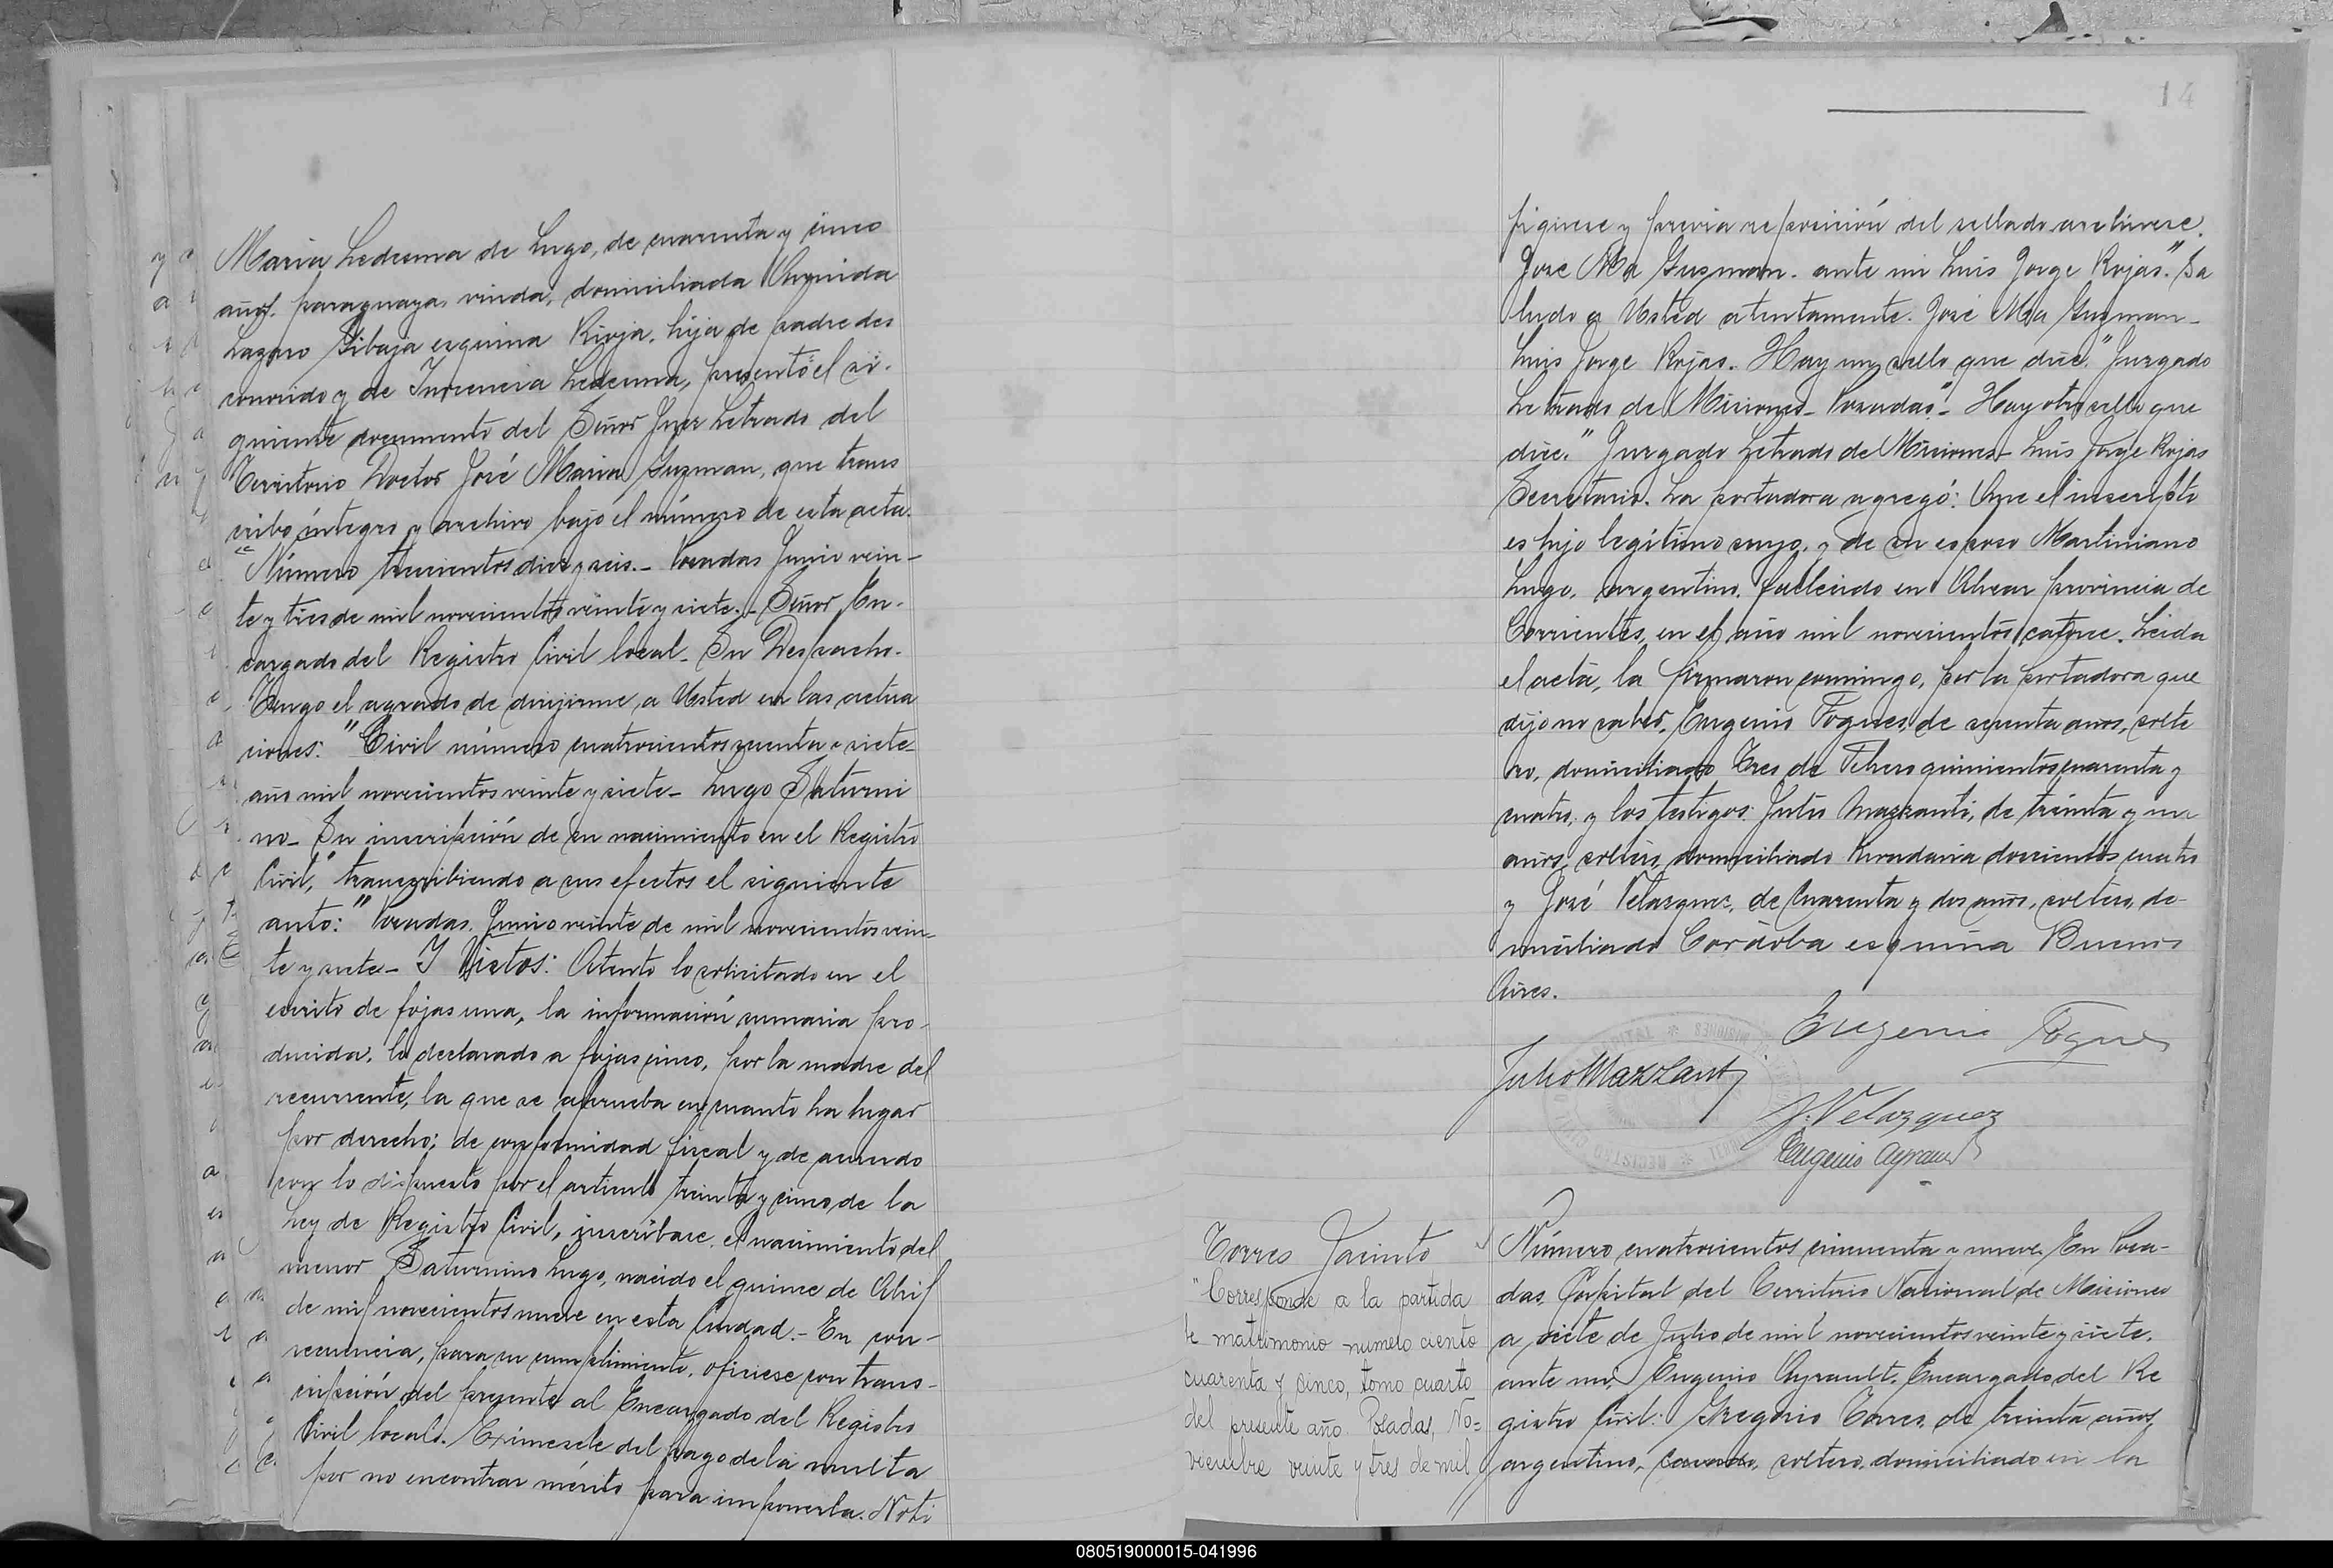 Maria Ledesma de Lugo, de cuarenta y cinco
años, paraguaya, viuda, domiciliada Avenida
Lazaro Gibaja esquina Rioja, hija de padre des
conocido y de Inocencia Ledesma, presentó el si-
guiente documento del Señor Juez Letrado del
Territorio Doctor José Maria Guzman, que trans
cribo íntegro y archivo bajo el número de esta acta.
"Número trescientos diez y seis.- Posadas Junio vein-
te y tres de mil novecientos veinte y siete.- Señor En-
cargado del Registro Civil local. Su Despacho.
Tengo el agrado de dirijirme a Usted en las actua
ciones: "Civil número cuatrocientos y siete
año mil novecientos veinte y siete- Lugo Saturni
no- Su inscripción de su nacimiento en el Registro
Civil," transcribiendo a sus efectos el siguiente
auto: "Posadas. Junio veinte de mil novecientos vein-
te y siete- Y Vistos: Atento lo solicitado en el
escrito de fojas una, la información sumaria pro-
ducida, lo declarado a fojas cinco, por la madre del
recurrente, la que se aprueba en cuanto ha lugar
por derecho; de conformidad fiscal y de acuerdo
con lo dispuesto por el artículo treinta y cinco de la
Ley de Registro Civil, inscríbase el nacimiento del
menor Saturnino Lugo, nacido el quince de Abril
de mil novecientos nueve en esta Ciudad.- En con-
secuencia, para su cumplimiento, ofíciese con trans-
cripción del presente al Encargado del Registro
Civil local. Exímesele del pago de la multa
por no encontrar mérito para imponerla. Noti
14
fíquese y previa reposición del sellado archívese.
José Ma Guzman. ante mi Luis Jorge Rojas." Sa
ludo a Usted atentamente. José Ma Guzman-
Luis Jorge Rojas. Hay un sello que dice: "Juzgado
Letrado de Misiones- Posadas"- Hay otro sello que
dice: "Juzgado Letrado de Misiones- Luis Jorge Rojas
Secretario. La portadora agregó: Que el inscripto
es hijo legítimo suyo, y de su esposo Martiniano
Lugo, argentino, fallecido en Alvear provincia de
Corrientes, en el año mil novecientos catorce. Leida
el acta, la firmaron conmigo, por la portadora que
dijo no saber, Eugenio Fogues, de años, solte
ro, domiciliado Tres de Febrero quinientos cuarenta y
cuatro, y los testigos: Julio Mazzanti, de treinta y un
años, soltero, domiciliado Rivadavia doscientos cuatro
y José Velazquez, de cuarenta y dos años, soltero, do-
miciliado Córdoba esquina Buenos
Aires.
Eugenio Fogues
Julio Mazzanti
J. Velazquez
Eugenio Ayrault
Torres Jacinto
"Corresponde a la partida
de matrimonio numero ciento
cuarenta y cinco, tomo cuarto
del presente año. Posadas, No=
viembre veinte y tres de mil
Número cuatrocientos cincuenta y nueve. En Posa-
das, Capital del Territorio Nacional de Misiones
a siete de Julio de mil novecientos veinte y siete.
ante mi, Eugenio Ayrault, Encargado del Re
gistro Civil: Gregorio Torres, de treinta años,
argentino, soltero, domiciliado en la
080519000015-041996